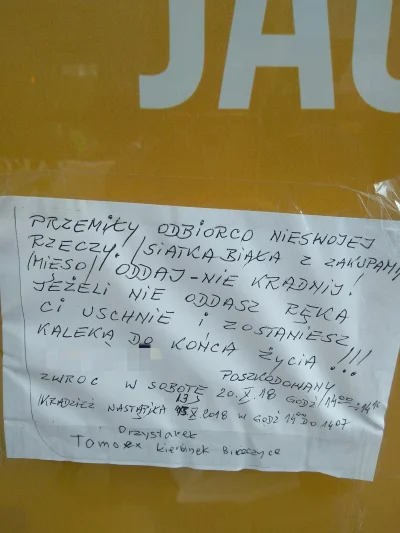 JAG
PRZEMIŁY ODBIORCO NIESWOJEJ
RZECZY! /SIATKA BIAŁA Z ZAKUPAMI
/MIĘSO/ ODDAJ - NIE KRADNIJ!
JEŻELI NIE ODDASZ RĘKA
CI USCHNIE i ZOSTANIESZ
KALEKĄ DO KOŃCA ŻYCIA!!!
POSZKODOWANY
ZWROC W SOBOTĘ 20.X.18 GODŹ/1400
/KRADZIEŻ NASTĄPIŁA 13 X 2018 W GODŹ 1400 DO 1407
Przystanek
Tomex kierunek